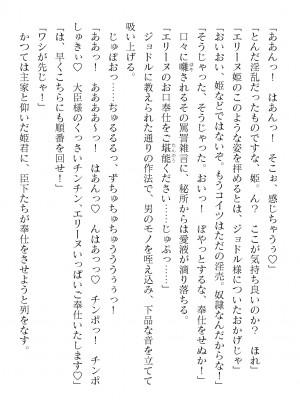 「ああんっ！　はあんっ！　そこぉ、感じちゃうぅ♡」
「とんだ淫乱だったものですな、姫。ん？　ここが気持ち良いのか？　ほれ」
「エリーヌ姫のこのような姿を拝めるとは、ジョドル様についたおかげじゃ」
「おいおい、姫などではないぞ。もうコイツはただの淫売。奴隷なんだからな！」
「そうじゃった、そうじゃった。おいっ！　ぼやっとするな、奉仕をせぬか！」
口々に囁されるその罵詈雑言に、秘所からは愛液が滴り落ちる。
「エリーヌのお口奉仕をご堪能ください……じゅぶ……」
ジョドルに教えられた通りの作法で、男のモノを咥え込み、下品な音を立てて
吸い上げる。
じゅぽおっ……ちゅるるるっ、ずちゅちゅううぅぅぅっ！
「ああっ！　あああ〜っ！　はあんっ♡　んはあっっ♡　チンポっ！　チンポお
しゅきぃ♡　大臣様のくっさいチンチン、エリーヌいっぱいご奉仕いたします♡」
「は、早くこちらにも順番を回せ！」
「ワシが先じゃ！」
かつては主家と仰いだ姫君に、臣下たちが奉仕をさせようと列をなす。